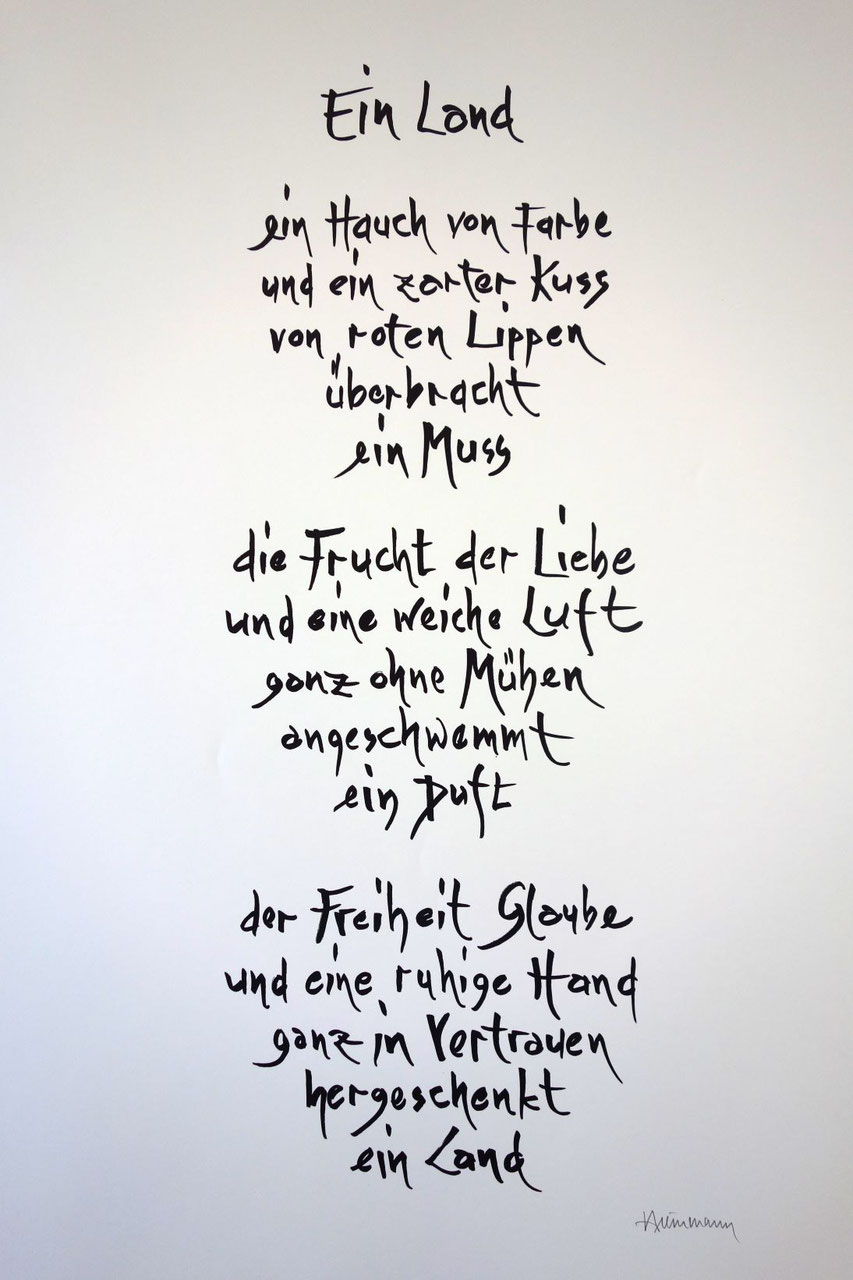 Ein Land
ein Hauch von Farbe
und ein zarter Kuss
von roten Lippen
überbracht
ein Muss
die Frucht der Liebe
und eine weiche Luft
ganz ohne Mühen
angeschwemmt
ein Duft
der Freiheit Glaube
und eine ruhige Hand
ganz in Vertrauen
hergeschenkt
ein Land